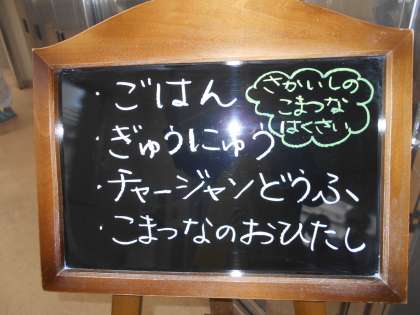 ・ごはん
・ぎゅうにゅう
・チャージャンどうふ
・こまつなのおひたし
さかいしの
こまつな
はくさい